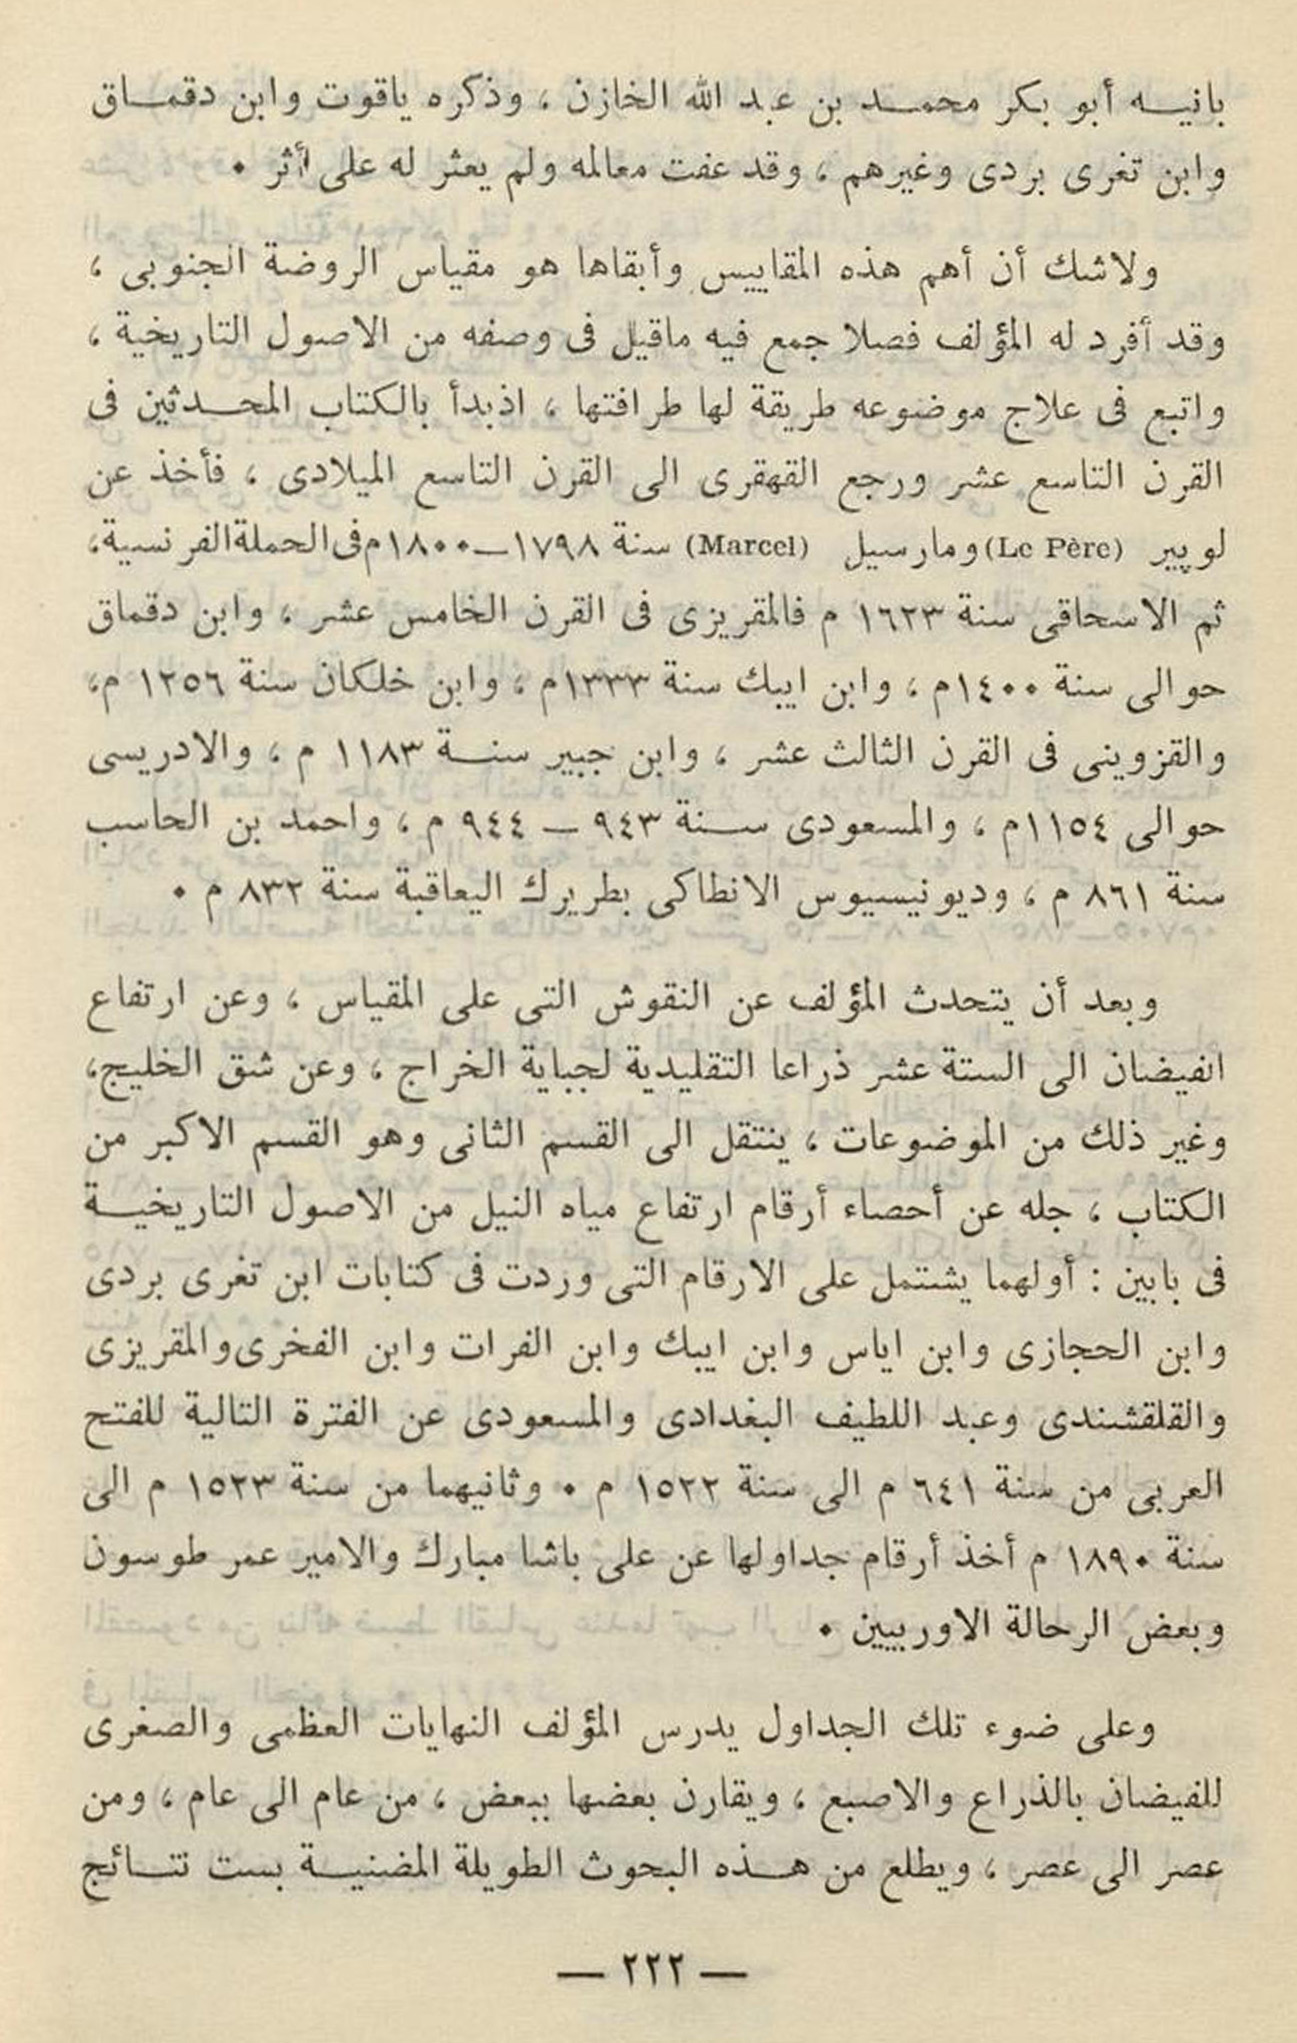 بانيه أبو بكر محمد بن عبد الله الخازن ، وذكره ياقوت وابن دقماق
وابن تغرى بردى وغيرهم ، وقد عفت معالمه ولم يعثر له على أثر ٠
ولاشك أن أهم هذه المقاييس وأبقاها هو مقياس الروضة الجنوبى ،
وقد أفرد له المؤلف فصلا جمع فيه ماقيل فى وصفه من الاصول التاريخية ،
واتبع فى علاج موضوعه طريقة لها طرافتها ، اذبدأ بالكتاب المحدثين فى
القرن التاسع عشر ورجع القهقرى الى القرن التاسع الميلادى ، فأخذ عن
لوپير (Le Père) ومارسيل (Marcel) سنة ١٧٩٨ــ١٨٠٠م فى الحملة الفرنسية،
ثم الاسحاقى سنة ١٦٢٣ م فالمقريزى فى القرن الخامس عشر ، وابن دقماق
حوالى سنة ١٤٠٠م ، وابن ايبك سنة ١٣٣٣م ، وابن خلكان سنة ١٢٥٦ م،
والقزوينى فى القرن الثالث عشر ، وابن جبير سنة ١١٨٣ م ، والادريسى
حوالى ١١٥٤م ، والمسعودى سنة ٩٤٣ ــ ٩٤٤ م ، واحمد بن الحاسب
سنة ٨٦١ م ، وديونيسيوس الانطاكى بطريرك اليعاقبة سنة ٨٣٢ م ٠
وبعد أن يتحدث المؤلف عن النقوش التى على المقياس ، وعن ارتفاع
انفيضان الى الستة عشر ذراعا التقليدية لجباية الخراج ، وعن شق الخليج،
وغير ذلك من الموضوعات ، ينتقل الى القسم الثانى وهو القسم الاكبر من
الكتاب ، جله عن أحصاء أرقام ارتفاع مياه النيل من الاصول التاريخية
فى بابين : أولهما يشتمل على الارقام التى وردت فى كتابات ابن تغرى بردى
وابن الحجازى وابن اياس وابن ايبك وابن الفرات وابن الفخرى والمقريزى
والقلقشندى وعبد اللطيف البغدادى والمسعودى عن الفترة التالية للفتح
العربى من سنة ٦٤١ م الى سنة ١٥٢٢ م ٠ وثانيهما من سنة ١٥٢٣ م الى
سنة ١٨٩٠ م أخذ أرقام جداولها عن على باشا مبارك والامير عمر طوسون
وبعض الرحالة الاوربيين ٠
وعلى ضوء تلك الجداول يدرس المؤلف النهايات العظمى والصغرى
للفيضان بالذراع والاصبع ، ويقارن بعضها ببعض ، من عام الى عام ، ومن
عصر الى عصر ، ويطلع من هذه البحوث الطويلة المضنية بست نتائج
ــ ٢٢٢ ــ